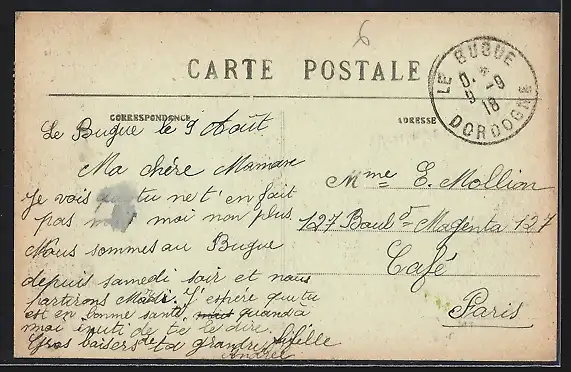 6
CARTE POSTALE
LE BUGUE
9 -8
18
DORDOGNE
CORRESPONDANCE
ADRESSE
Le Bugue le 9 Août
Ma chère Maman
Je vois que tu ne t'en fait
pas moi non plus
Nous sommes au Bugue
depuis samedi soir et nous
partirons Mardi. J'espère que tu
est en bonne santé, quand a
moi inuti de te le dire.
Gros baisers de ta grande fifille
Andrée
Mme E. Mollion
127 Bauld Magenta 127
Café
Paris